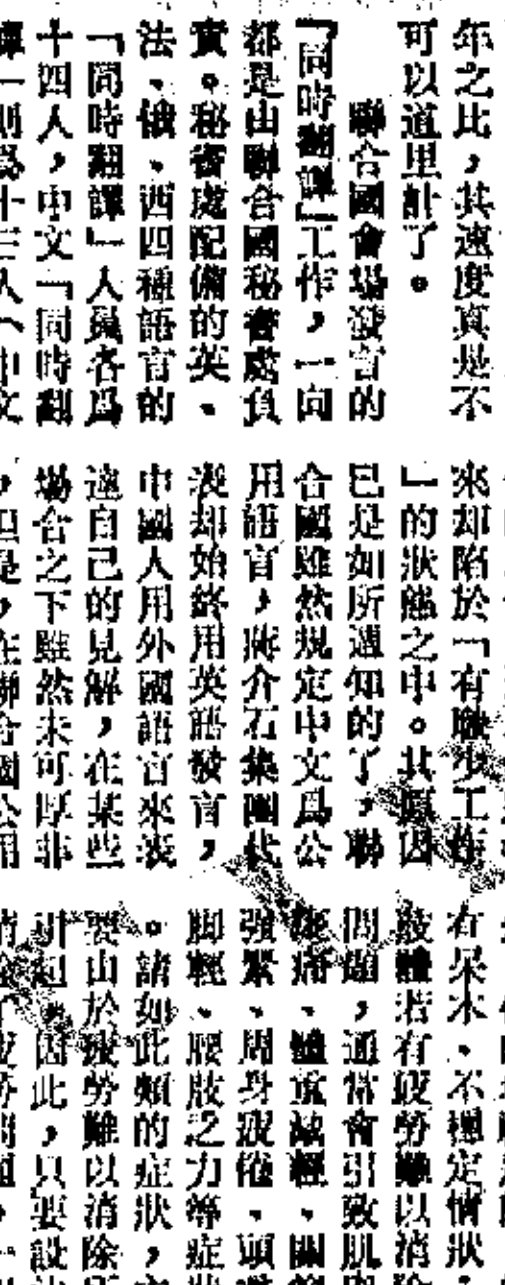 年之比，其速度真是不
可以道里計了。
聯合國會場發言的
「同時翻譯」工作，一向
都是由聯合國秘書處負
責。秘書處配備的英、
法、俄、西四種語言的
「同時翻譯」人員各爲
十四人，中文「同時翻
譯」則爲十三人（中文
來却陷於「有職少工作
」的狀態之中。其原因
已是如所週知的了，聯
合國雖然規定中文爲公
用語言，蔣介石集團代
表却始終用英語發言，
中國人用外國語言來表
達自己的見解，在某些
場合之下雖然未可厚非
，但是，在聯合國公用
有呆木、不穩定情狀
肢體若有疲勞難以消除
問題，通常會引致肌
痛、體重減輕、關節
強緊、周身疲倦、頭
脚輕、腰肢乏力等症狀
。諸如此類的症狀，
要由於疲勞難以消除所
引起，因此，只要設法
消除了疲勞問題，一